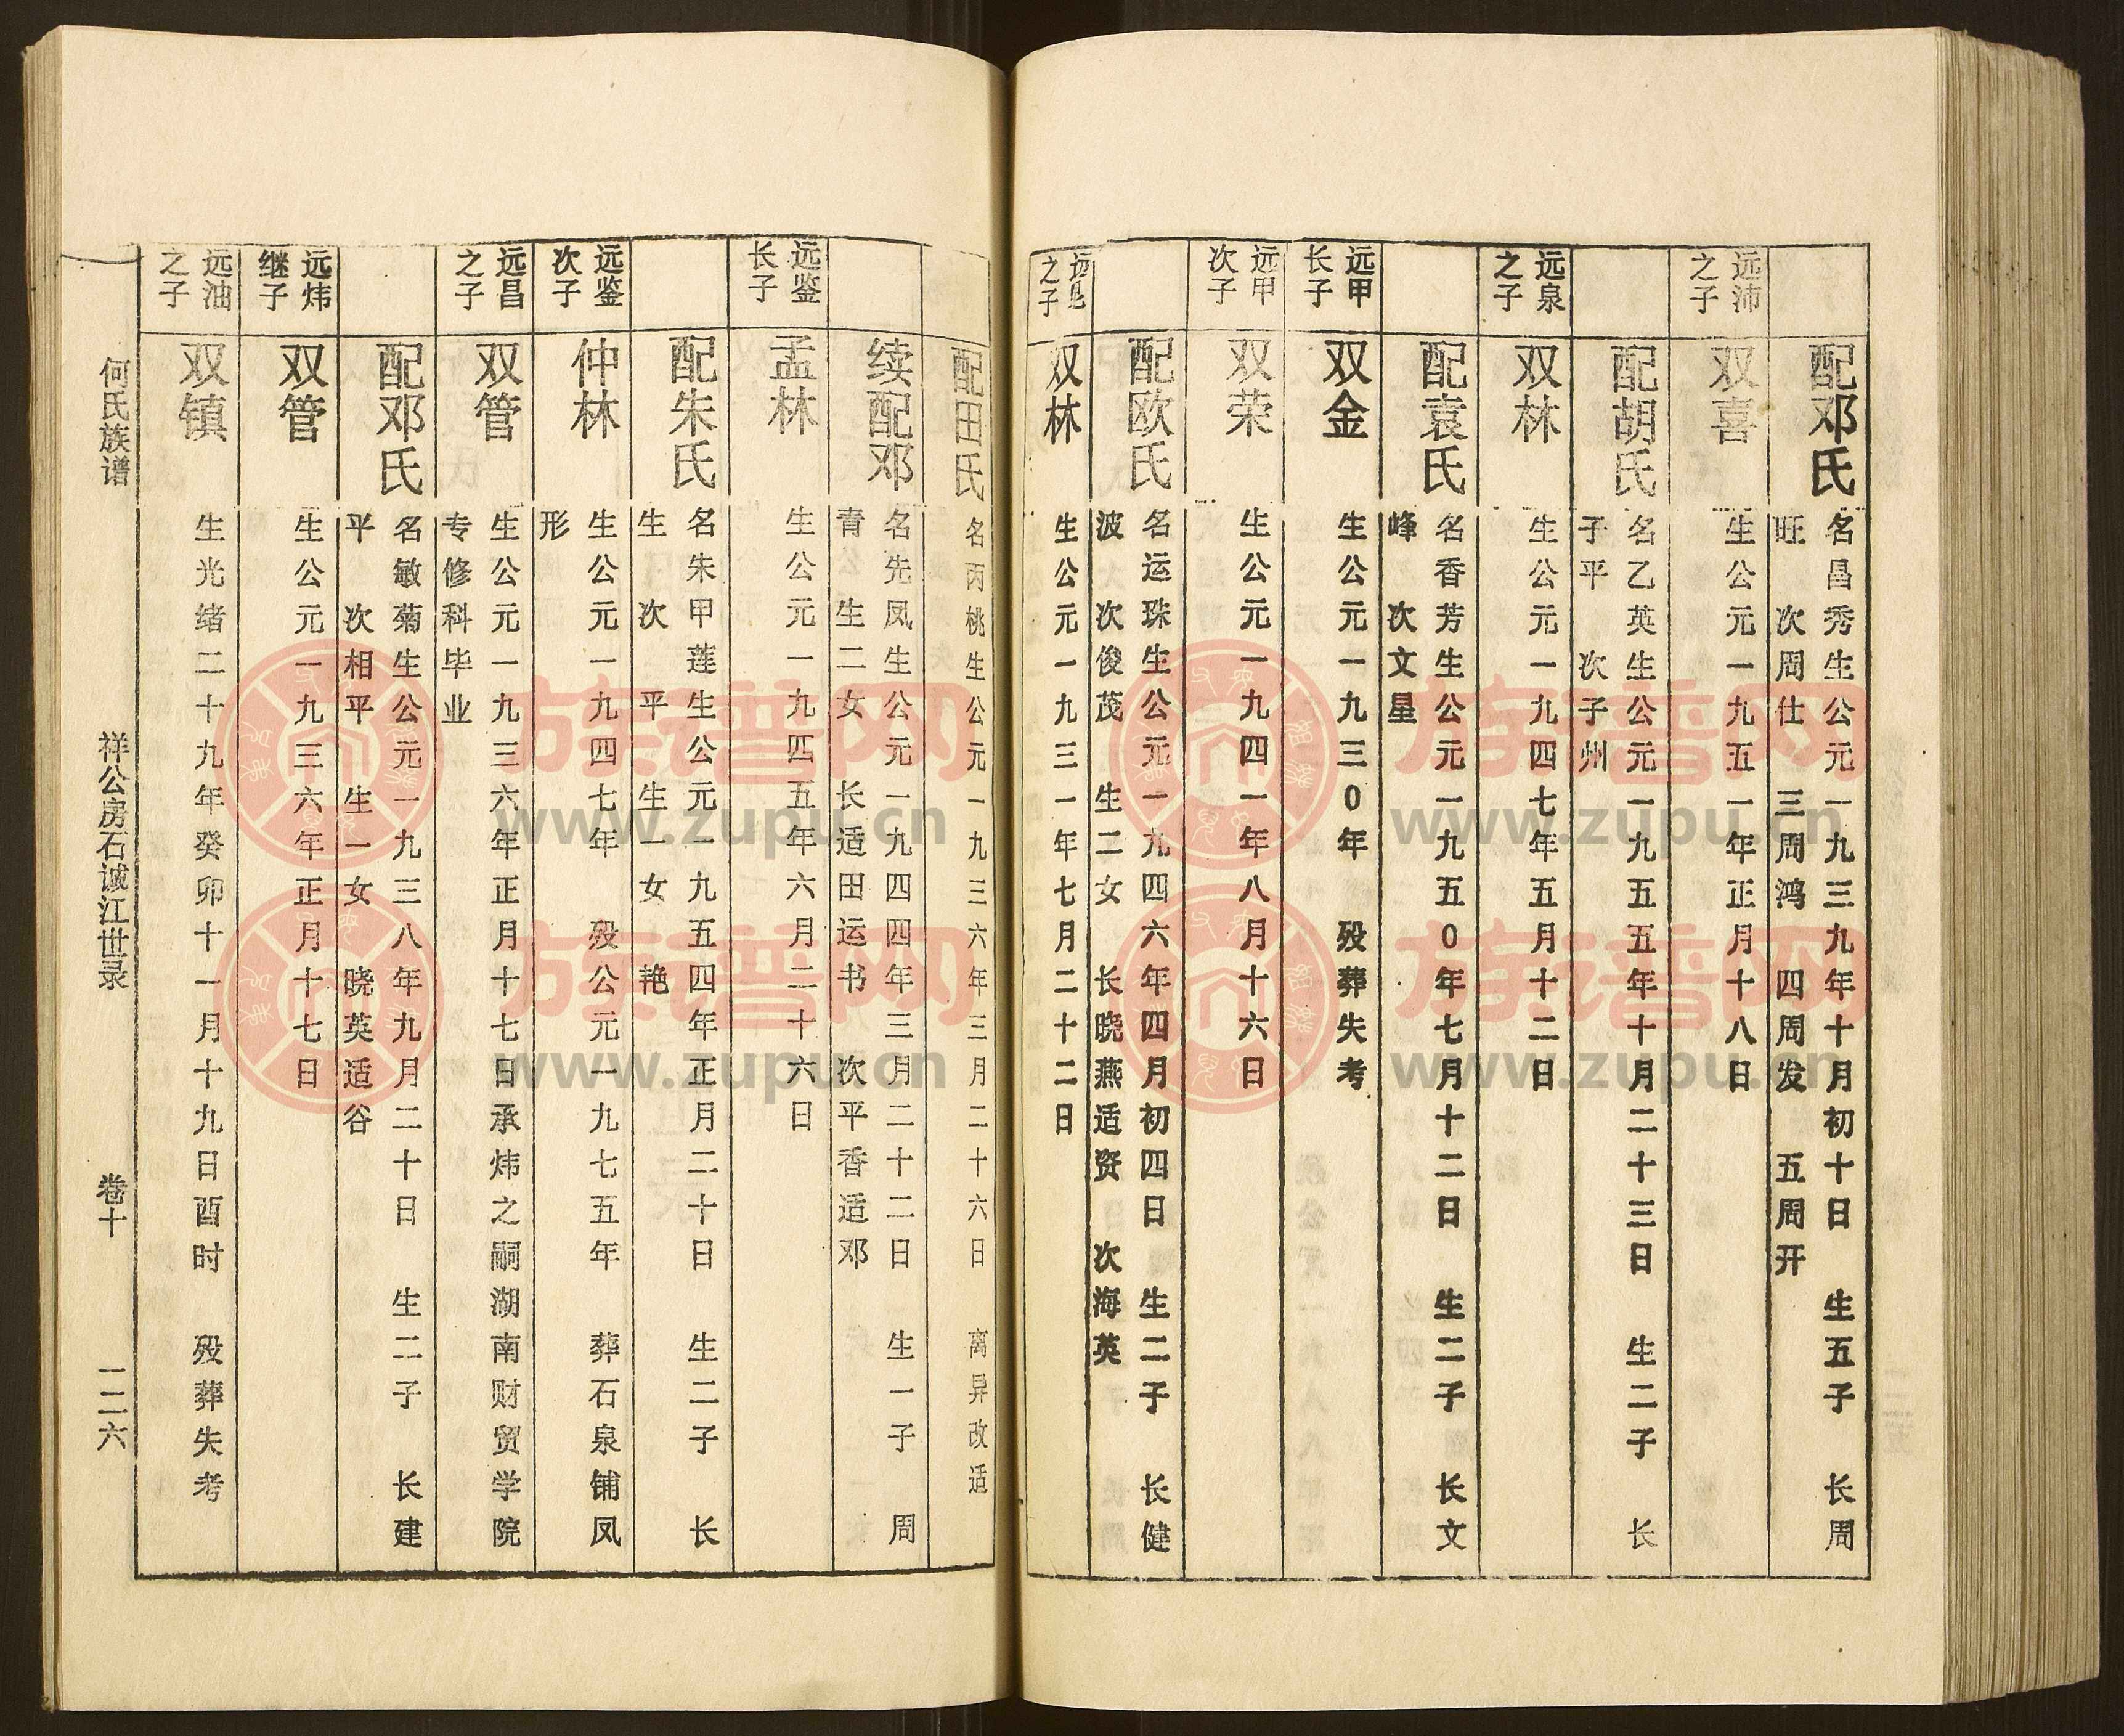 配邓氏
名昌秀生公元一九三九年十月初十日 生五子 长周
旺 次周仕 三周鸿 四周发 五周开
远沛
之子
双喜
生公元一九五一年正月十八日
配胡氏
名乙英生公元一九五五年十月二十三日 生二子 长
子平 次子州
远泉
之子
双林
生公元一九四七年五月十二日
配袁氏
名香芳生公元一九五0年七月十二日 生二子 长文
峰 次文星
远甲
长子
双金
生公元一九三0年 殁葬失考
远甲
次子
双荣
生公元一九四一年八月十六日
配欧氏
名运珠生公元一九四六年四月初四日 生二子 长健
波 次俊茂 生二女 长晓燕适资 次海英
之子
双林
生公元一九三一年七月二十二日
配田氏
名丙桃生公元一九三六年三月二十六日 离异改适
续配邓
名先凤生公元一九四四年三月二十二日 生一子 周
青 生二女 长适田运书 次平香适邓
远鉴
长子
孟林
生公元一九四五年六月二十六日
配朱氏
名朱甲莲生公元一九五四年正月二十日 生二子 长
生 次平 生一女 艳
远鉴
次子
仲林
生公元一九四七年 殁公元一九七五年 葬石泉铺凤
形
远昌
之子
双管
生公元一九三六年正月十七日承炜之嗣湖南财贸学院
专修科毕业
配邓氏
名敏菊生公元一九三八年九月二十日 生二子 长建
平 次相平 生一女 晓英适谷
远炜
继子
双管
生公元一九三六年正月十七日
远油
之子
双镇
生光绪二十九年癸卯十一月十九日酉时 殁葬失考
何氏族谱 祥公房石诚江世录 卷十 一二六
族谱网
www.zupu.cn
族谱网
www.zupu.cn
族谱网
www.zupu.cn
族谱网
www.zupu.cn